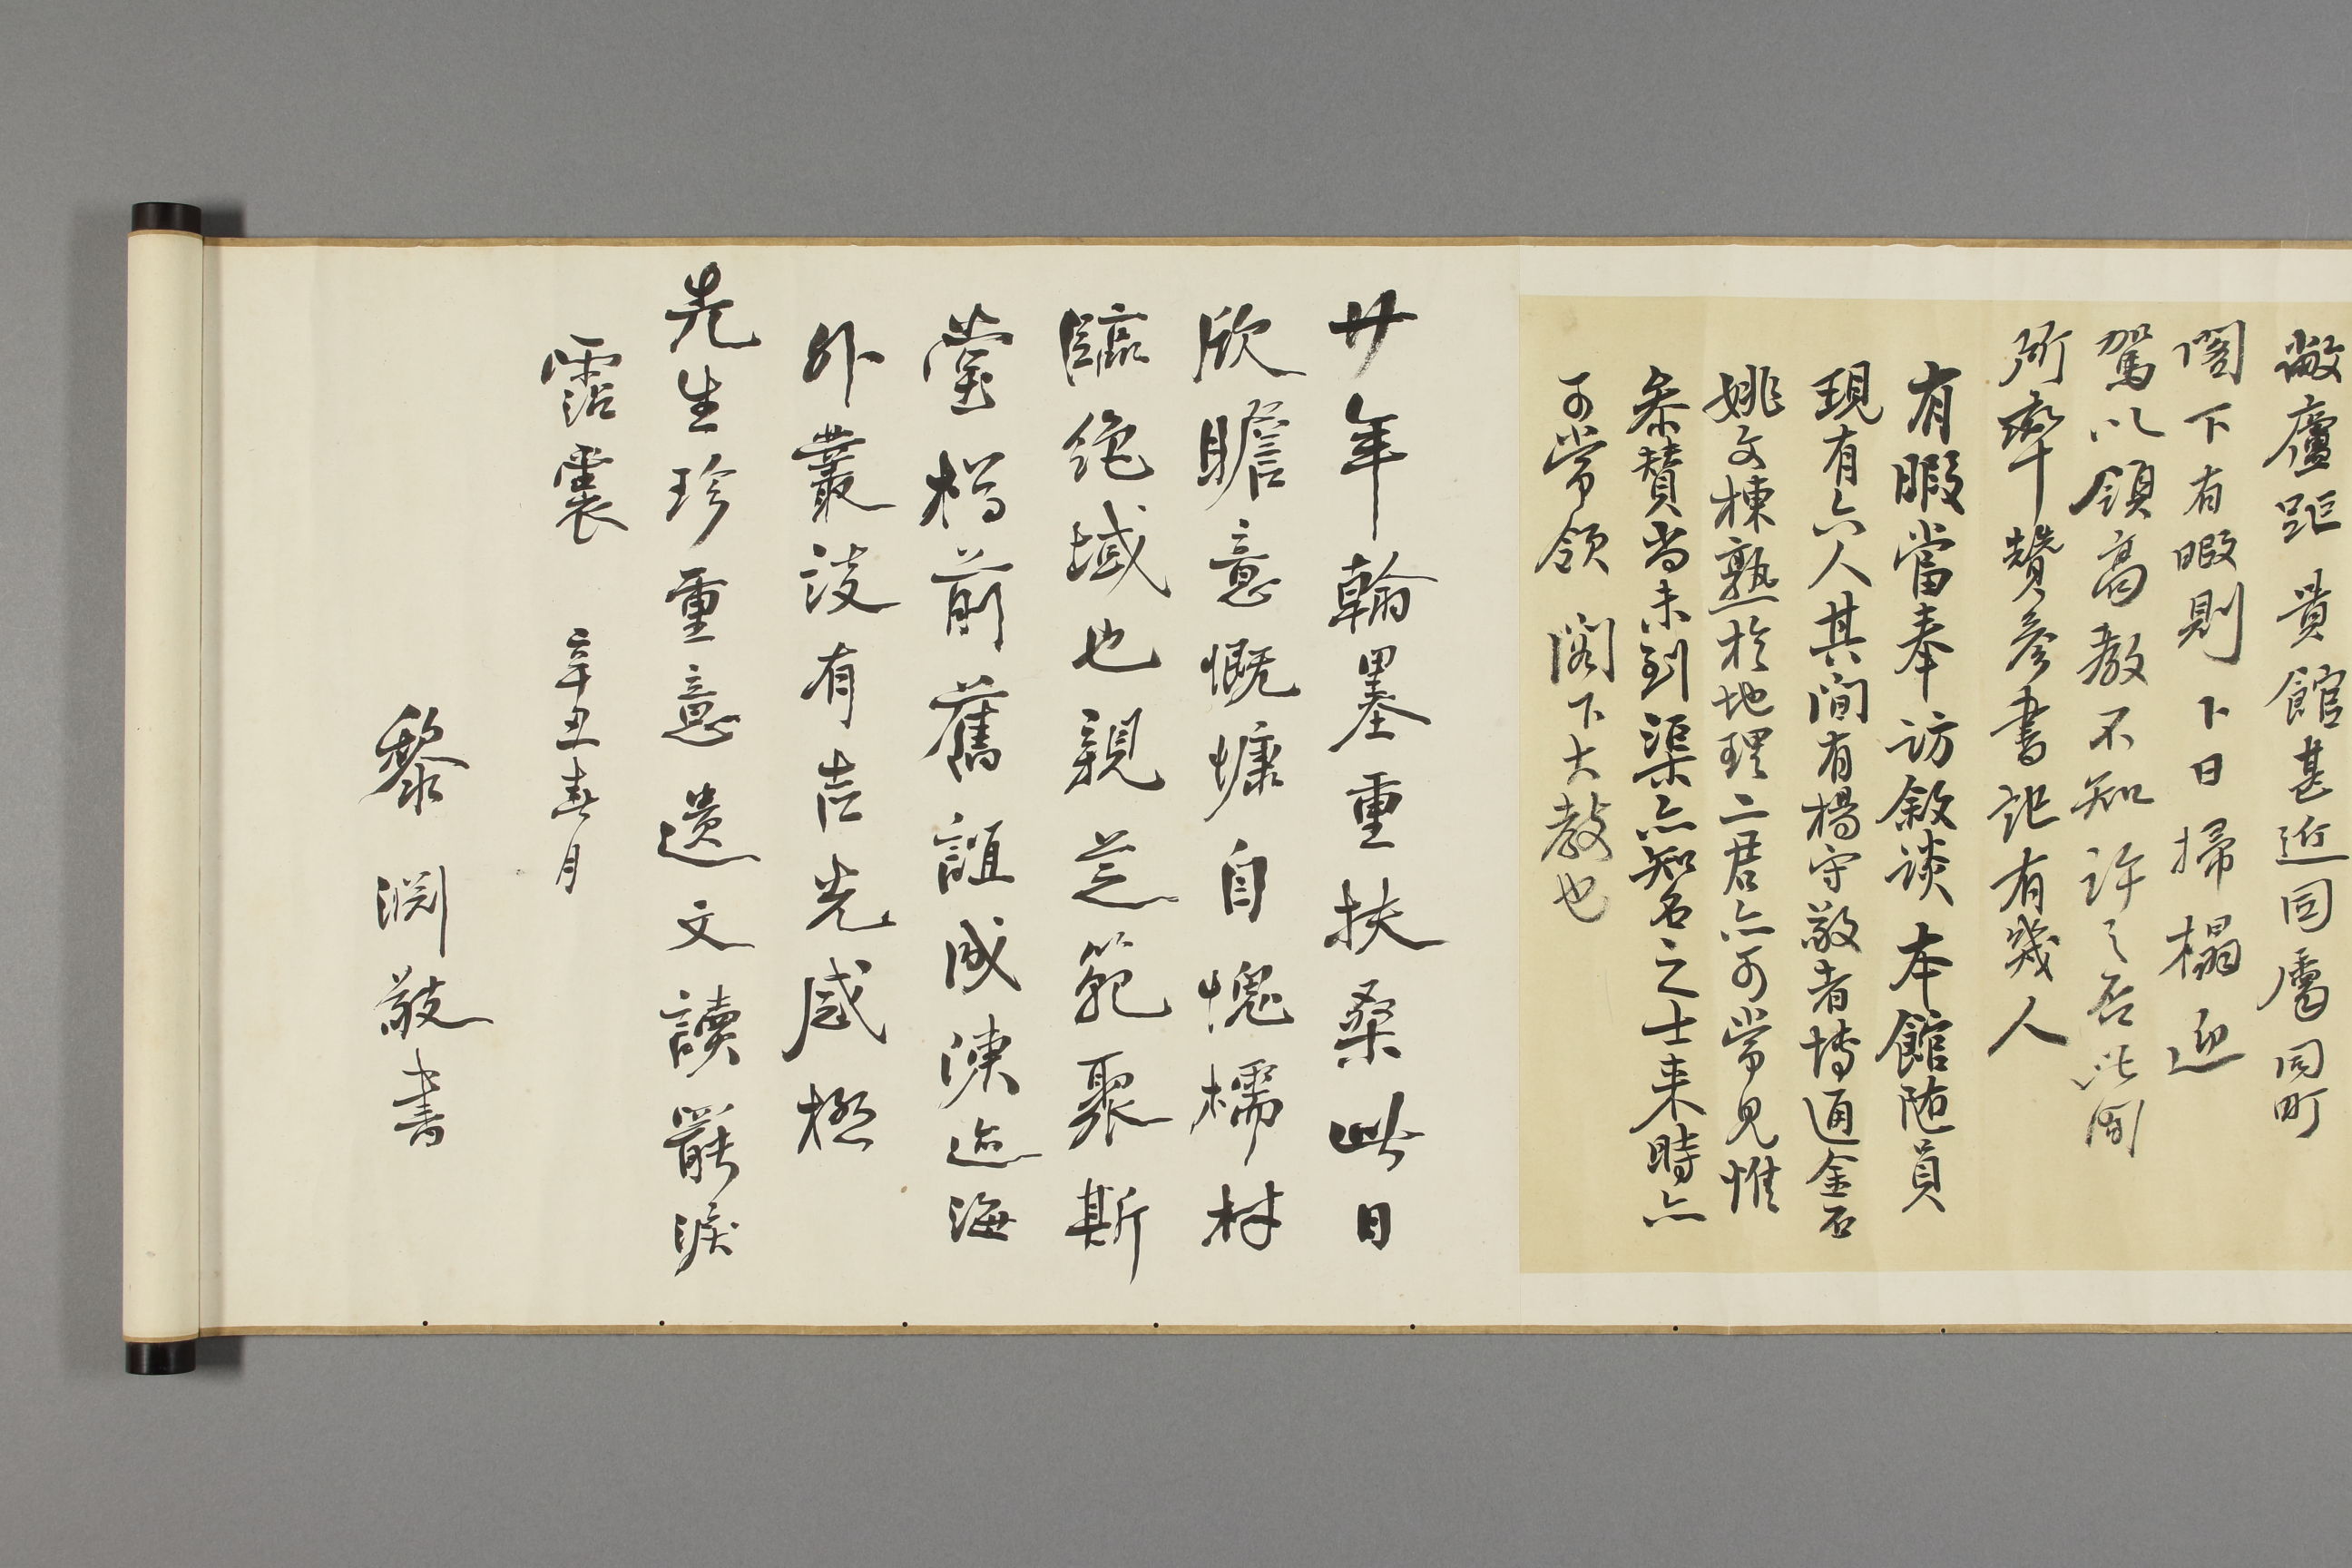 敝廬距 貴館甚近同屬同町
閣下有暇則 卜日掃榻迎
駕以領高教不知許之否此間
所率贊參書記有幾人
有暇當奉訪敘談 本館随員
現有六人其間有楊守敬者博通金石
姚文棟熟於地理二君亦可常見惟
参贊尚未到渠亦知名之士来時亦
可常領 閣下大教也
廿年翰墨重扶桑此日
欣瞻意慨慷自愧樗材
臨絶域也親芝範聚斯
堂樽前舊誼成陳迹海
外叢談有吉光感極
先生珍重意遺文讀罷淚
霑裳 辛丑春月
黎淵敬書